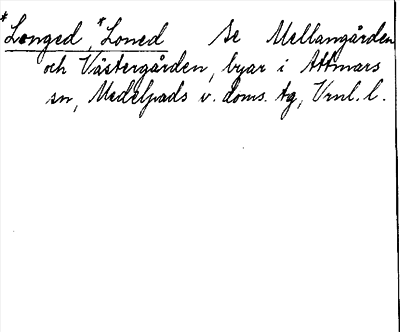 *Longed, *Loned Se Mellangården
och Västergården, byar i Attmars
sn, Medelpads v. doms. tg, Vrnl. l.